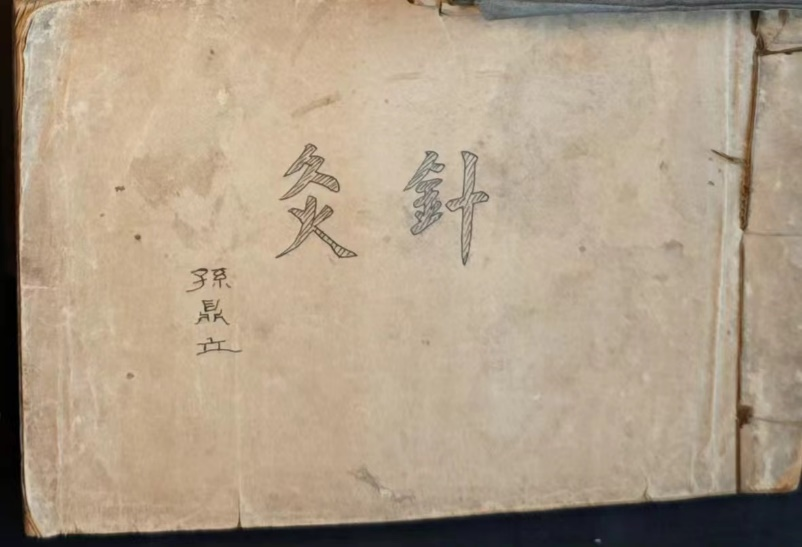 針灸
孫鼎立